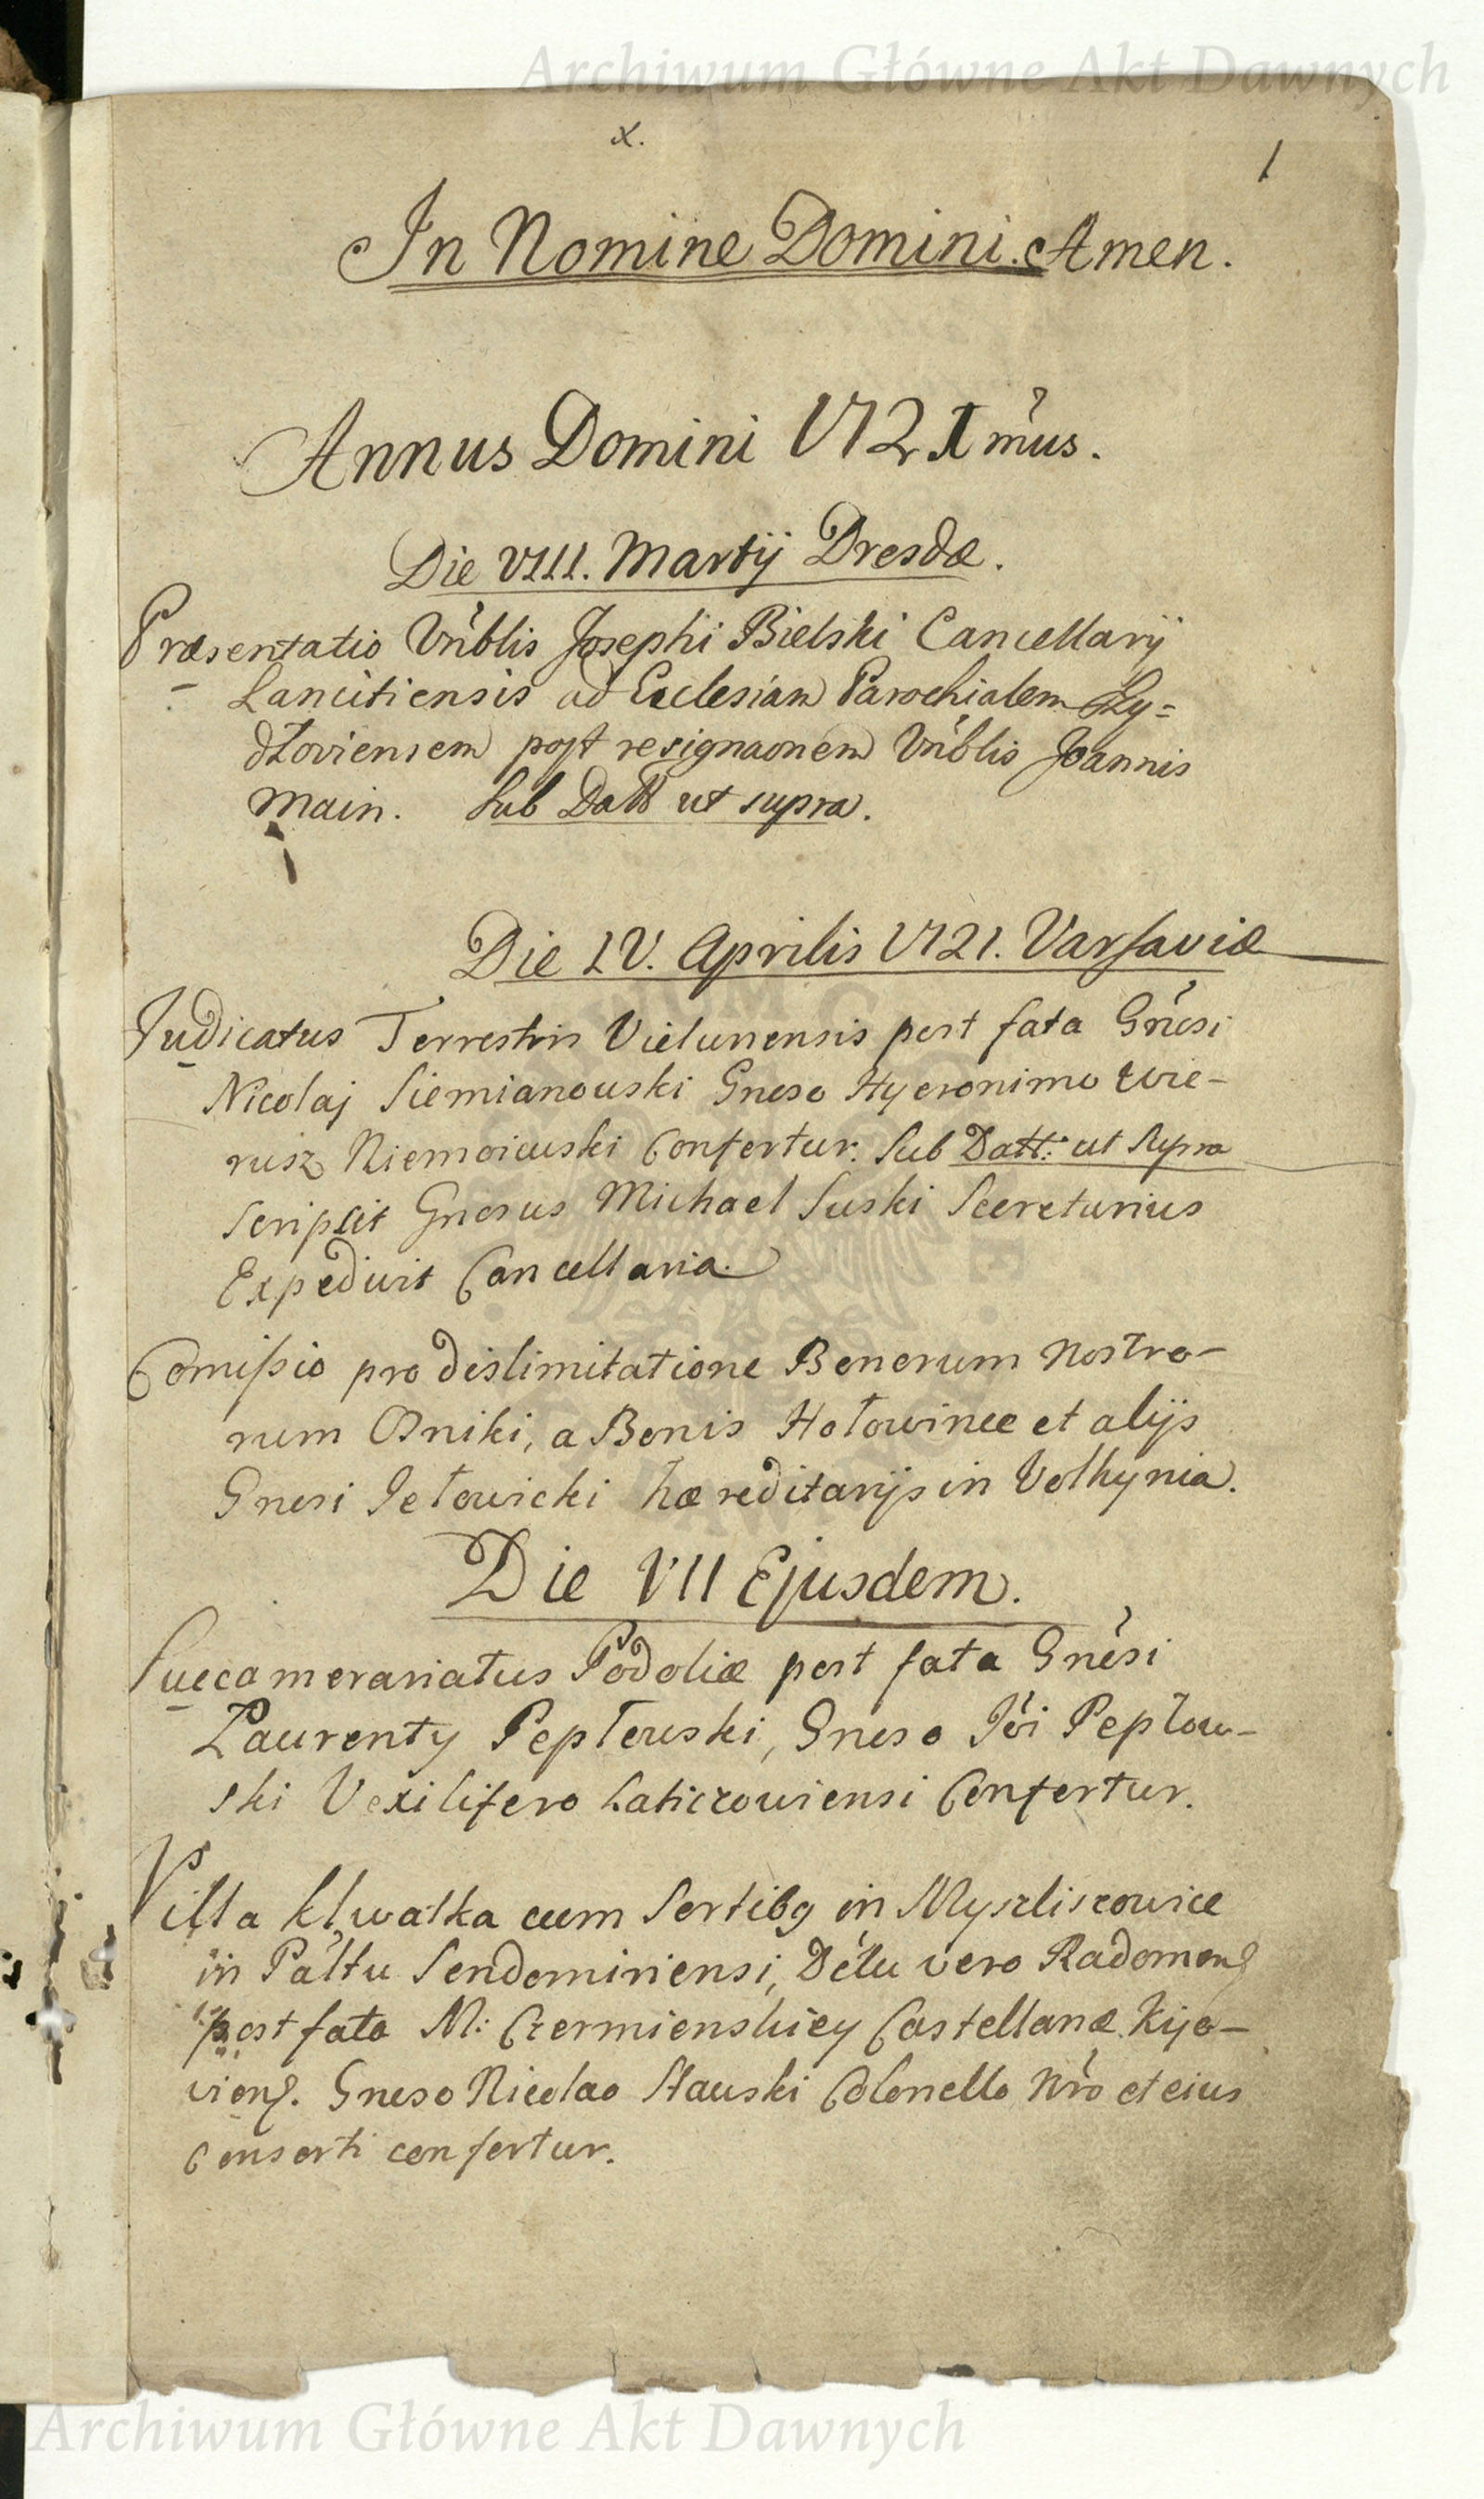 Archiwum Główne Akt Dawnych
x.
1
In Nomine Domini. Amen.
Annus Domini 1721mus.
Die VIII. Martij Dresdæ.
Præsentatio Vñblis Josephi Bielski Cancellarij
Lancitiensis ad Ecclesiam Parochialem Szy=
dłoviensem post resignaonem Vñblis Joannis
Main. Sub Datt ut supra.
Die IV. Aprilis 1721. Varsaviæ
Judicatus Terrestris Vielunensis post fata Gnesi
Nicolaj Siemianowski Gneso Hyeronimo Wie-
rusz Niemoiewski Confertur. Sub Datt: ut Supra
Scripsit Gnosus Michael Suski Secretarius
Expedivit Cancellaria.
Comissio pro dislimitatione Bonorum Nostro-
rum Osniki, a Bonis Hołowince et alijs
Gnosi Jełowicki hæreditarijs in Volhynia.
Die VII Ejusdem.
Succamerariatus Podoliæ post fata Gnesi
Laurenty Pepłowski, Gneso Jói Pepłow-
ski Vexilifero Laticzowiensi Confertur.
Villa Chwałka cum Sortibg in Myszliszowice
in Pałtu Sendomiriensi, Dctu vero Radomens
post fata M: Czermienskiey Castellanæ Kijo-
viens. Gneso Nicolao Stawski Colonello Nro et eius
Consorti confertur.
Archiwum Główne Akt Dawnych